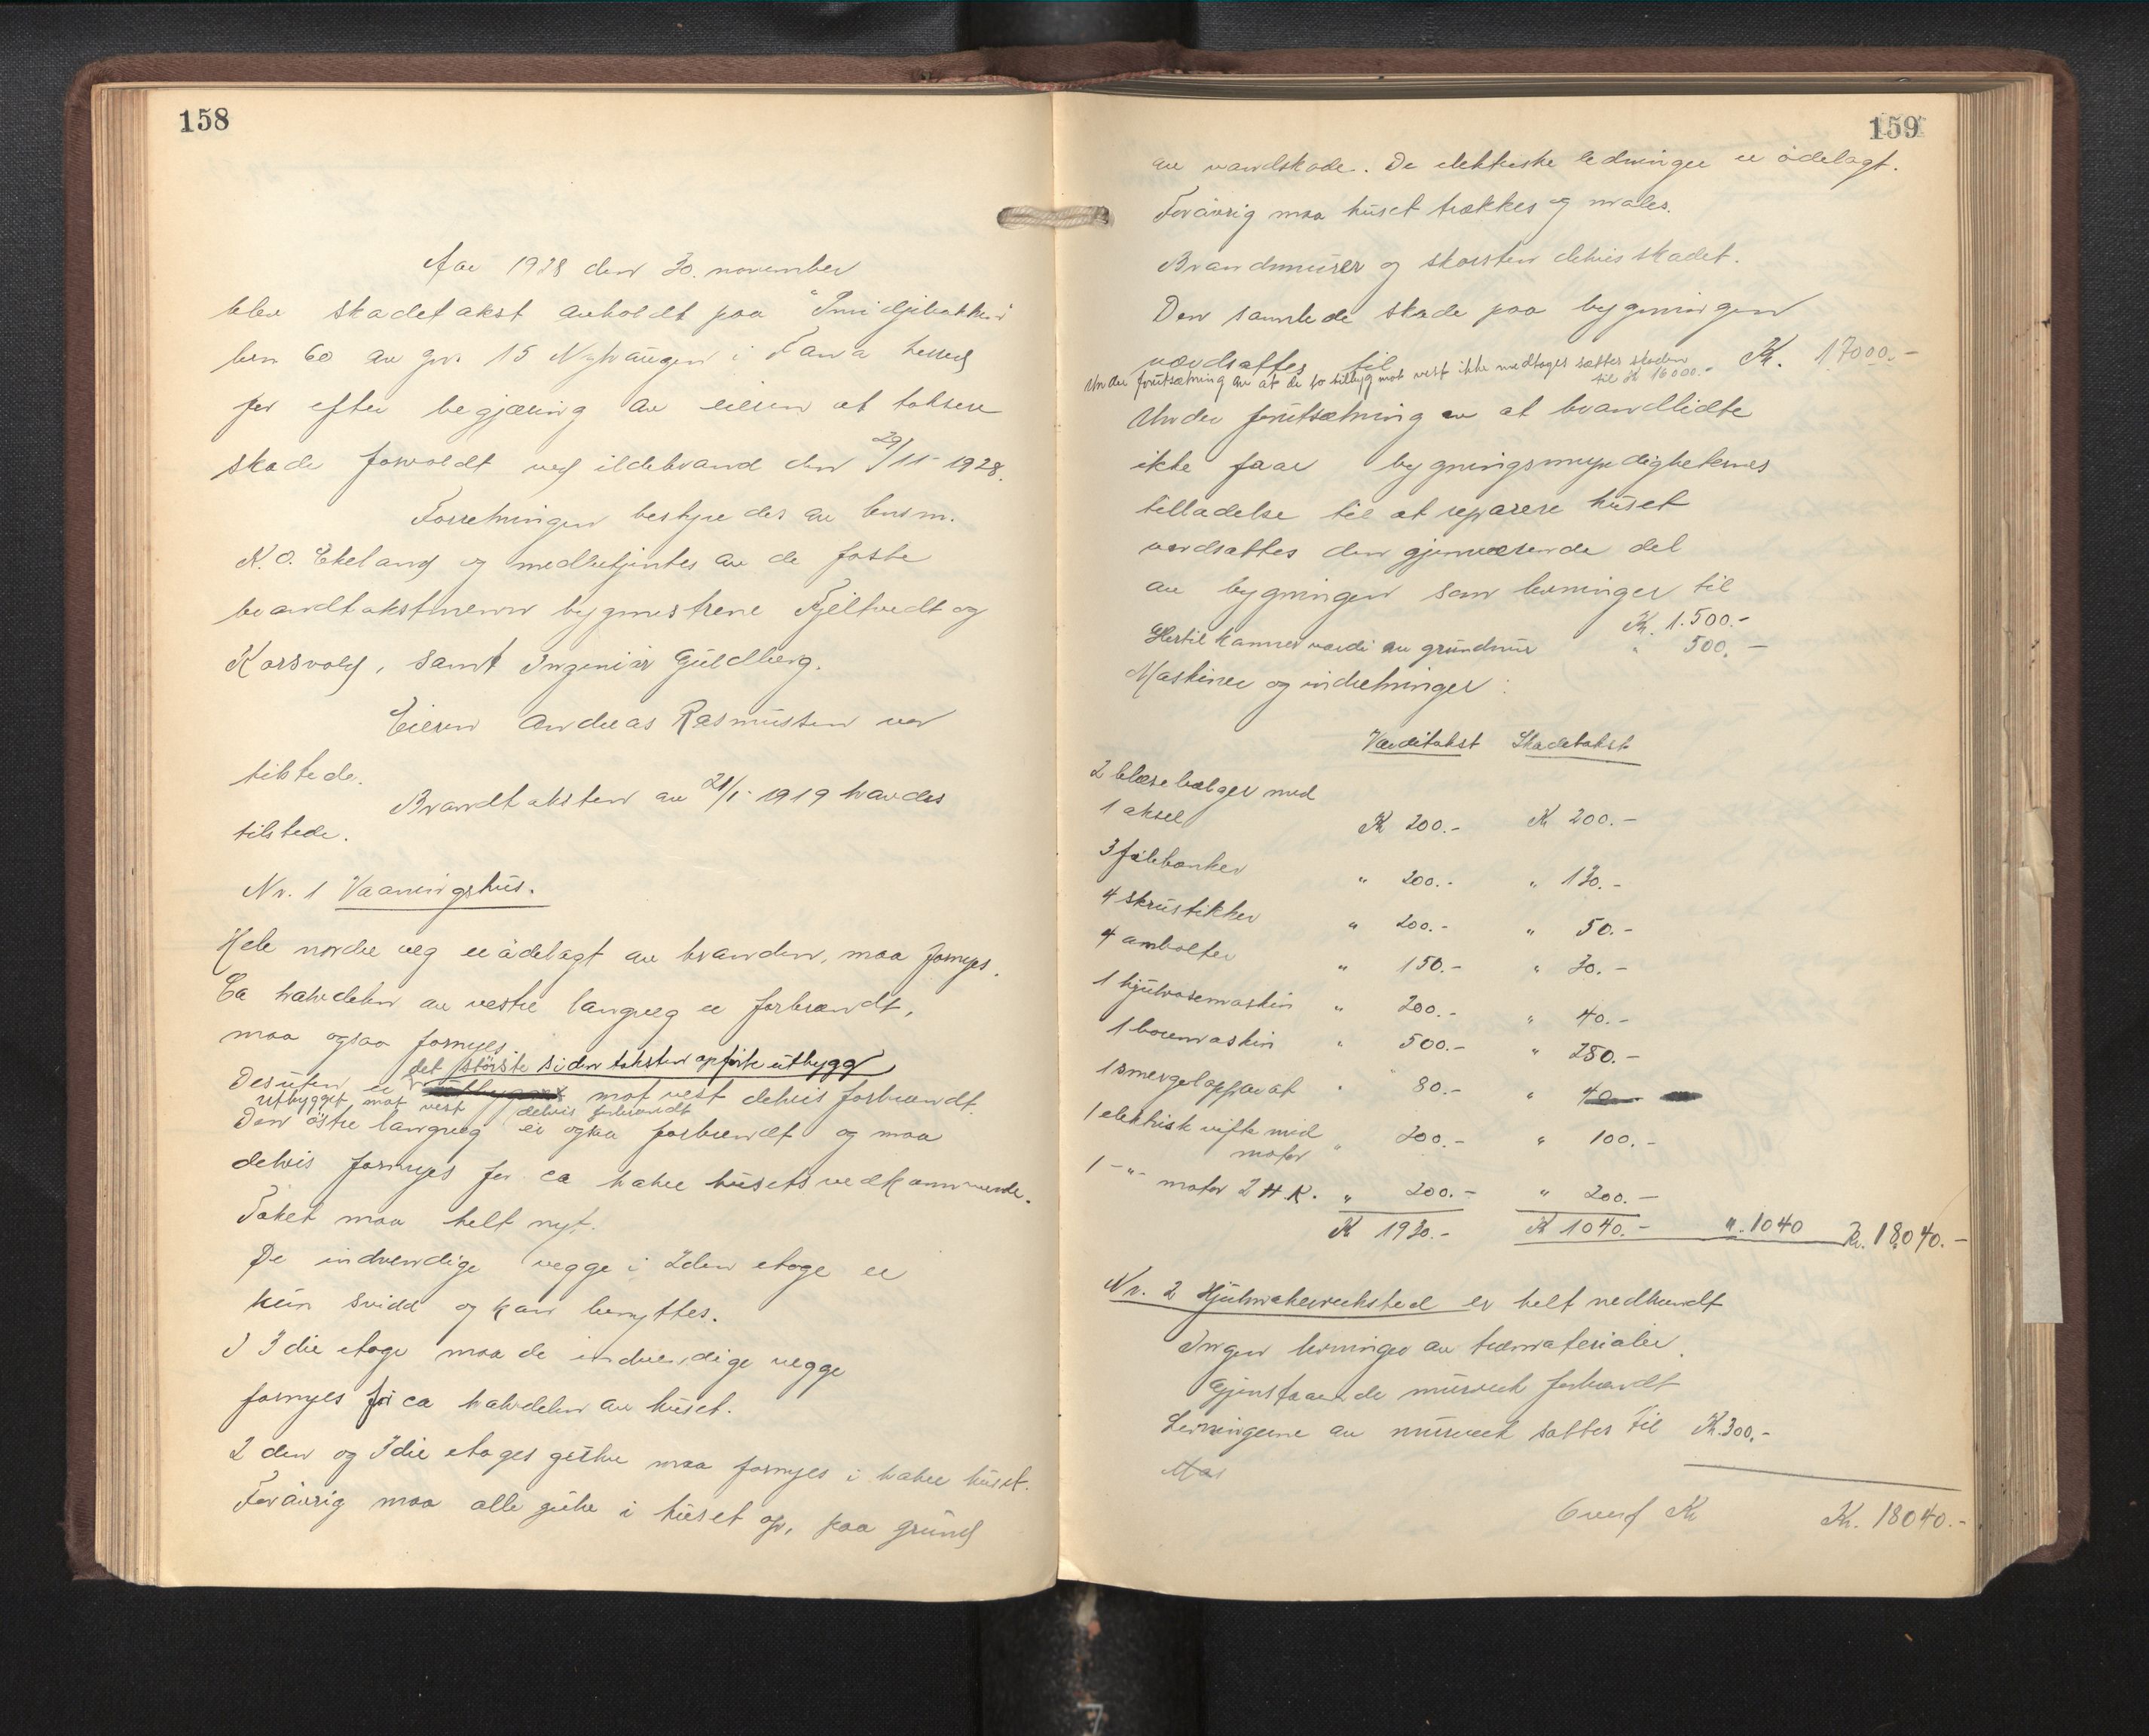 158
Aar 1928 den 30. november
blev skadetakst avholdt paa "Smidjebakken"
brn 60 av gnr 15 i Fana herred
for efter begjæring av eieren at taksere
skade forvoldt ved ildebrand den 29/11-1928.
Forretningen bestyredes av lensm.
K. O. Ekeland og medbetjentes av de faste
brandtakstmenn bygmestrene Fjeltvedt og
Korsvold, samt Ingeniør Guldberg.
Eieren Andreas Rasmussen var
tilstede.
Brandtaksten av 21/1-1919 havdes
tilstede.
Nr. 1 Vaaningshus.
Hele nordre veg er ødelagt av branden, maa fornyes.
Ca halvdelen av vestre langveg er forbrændt,
maa ogsaa fornyes.
det største siden taksten opførte utbygg
Desuten er mot vest delvis forbrændt.
utbygget mot vest delvis forbrændt
Den østre langveg er ogsaa forbrændt og maa
delvis fornyes for ca halve husets vedkommende.
Taket maa helt nyt.
De indvendige vegge i 2den etage er
kun svidd og kan benyttes.
I 3die etage maa de indvendige vegge
fornyes for ca halvdelen av huset.
2den og 3die etages gulve maa fornyes i halve huset.
Forøvrig maa alle gulve i huset op, paa grund
159
av vandskade. De elektriske ledninger er ødelagt.
Forøvrig maa huset trækkes og males.
Brandmurer og skorsten delvis skadet.
Den samlede skade paa bygningen
værdsættes til Kr. 17000.-
Under forutsætning av at de to tilbyg mot vest ikke medtages sættes skaden
til Kr 16000.-
Under forutsætning av at brandlidte
ikke faar bygningsmyndigheternes
tilladelse til at reparere huset
værdsættes den gjenværende del
av bygningen som levninger til
Kr. 1.500.-
Hertil kommer værdi av grundmur " 500.-
Maskiner og indretninger:
Værditakst Skadetakst
2 blæsebælger med
1 aksel Kr 200.- Kr 200.-
3 filebænker " 200.- " 130.-
4 skrustikker " 200.- " 50.-
4 ambolter " 150.- " 30.-
1 hjulboremaskin " 200.- " 40.-
1 boremaskin " 500.- " 250.-
1 smergelapparat " 80.- " 40.-
1 elektrisk vifte med
motor " 200.- " 100.-
1 -"- motor 2 H.K. " 200.- " 200.-
Kr 1930.- Kr 1040.- " 1040 Kr. 18040.-
Nr. 2 Hjulmakerverksted er helt nedbrændt
Ingen levninger av træmaterialer.
Gjenstaaende murverk forbrændt
Levningerne av murverk sættes til Kr. 300.-
Overf Kr Kr. 18040.-